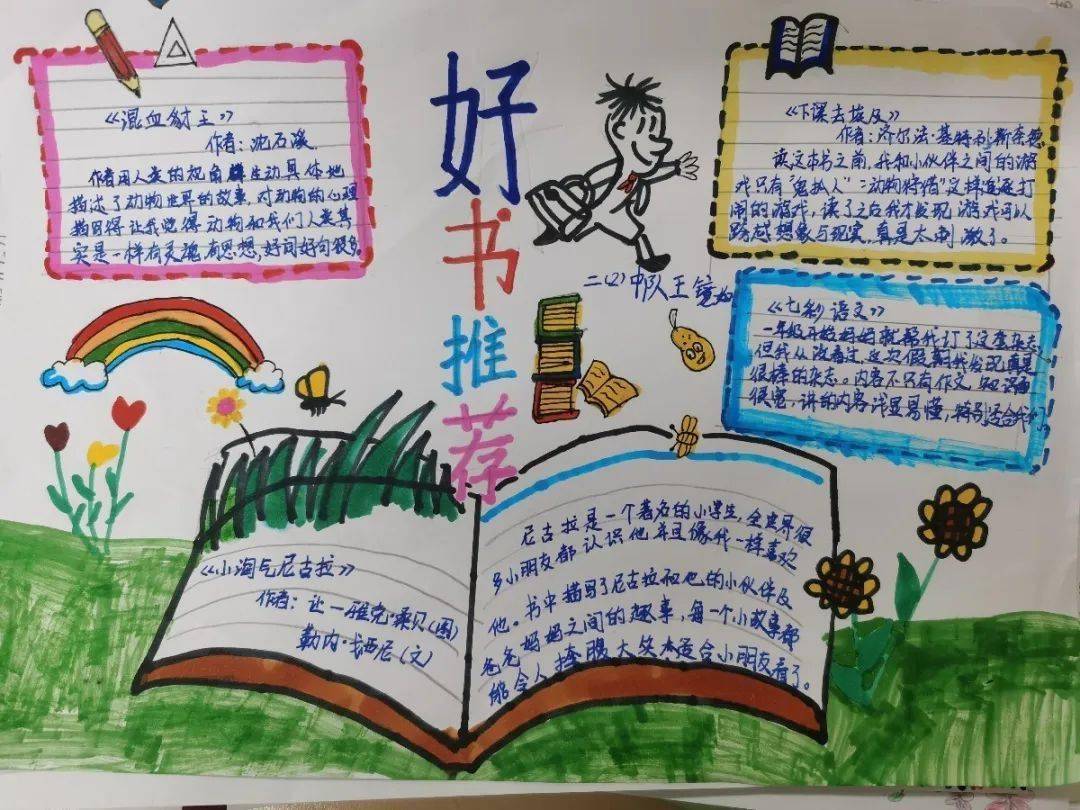 好书推荐
《混血豺王》
作者:沈石溪
作者用人类的视角鲜生动具体地
描述了动物世界的故事,对动物的心理
描写得让我觉得动物和我们人类其
实是一样有灵魂有思想,好词好句很多。
《下课去埃及》
作者:济尔法·基特利·斯奈德
读这本书之前,我和小伙伴之间的游
戏只有“鬼抓人”“动物狩猎”这样追逐打
闹的游戏,读了之后我才发现游戏可以
跨越想象与现实,真是太刺激了。
二(2)中队王镜
《七彩语文》
一年级开始妈妈就帮我订了这套杂志
但我从没看过,这次假期我发现真是
很棒的杂志。内容不只有作文,知识面
很宽,讲的内容浅显易懂,特别适合我们。
《小淘气尼古拉》
作者:让一雅克·桑贝(图)
勒内·戈西尼(文)
尼古拉是一个著名的小学生,全世界很
多小朋友都认识他并且像我一样喜欢
他。书中描写了尼古拉和他的小伙伴及
爸爸妈妈之间的趣事,每一个小故事都
能令人捧腹大笑太适合小朋友看了。